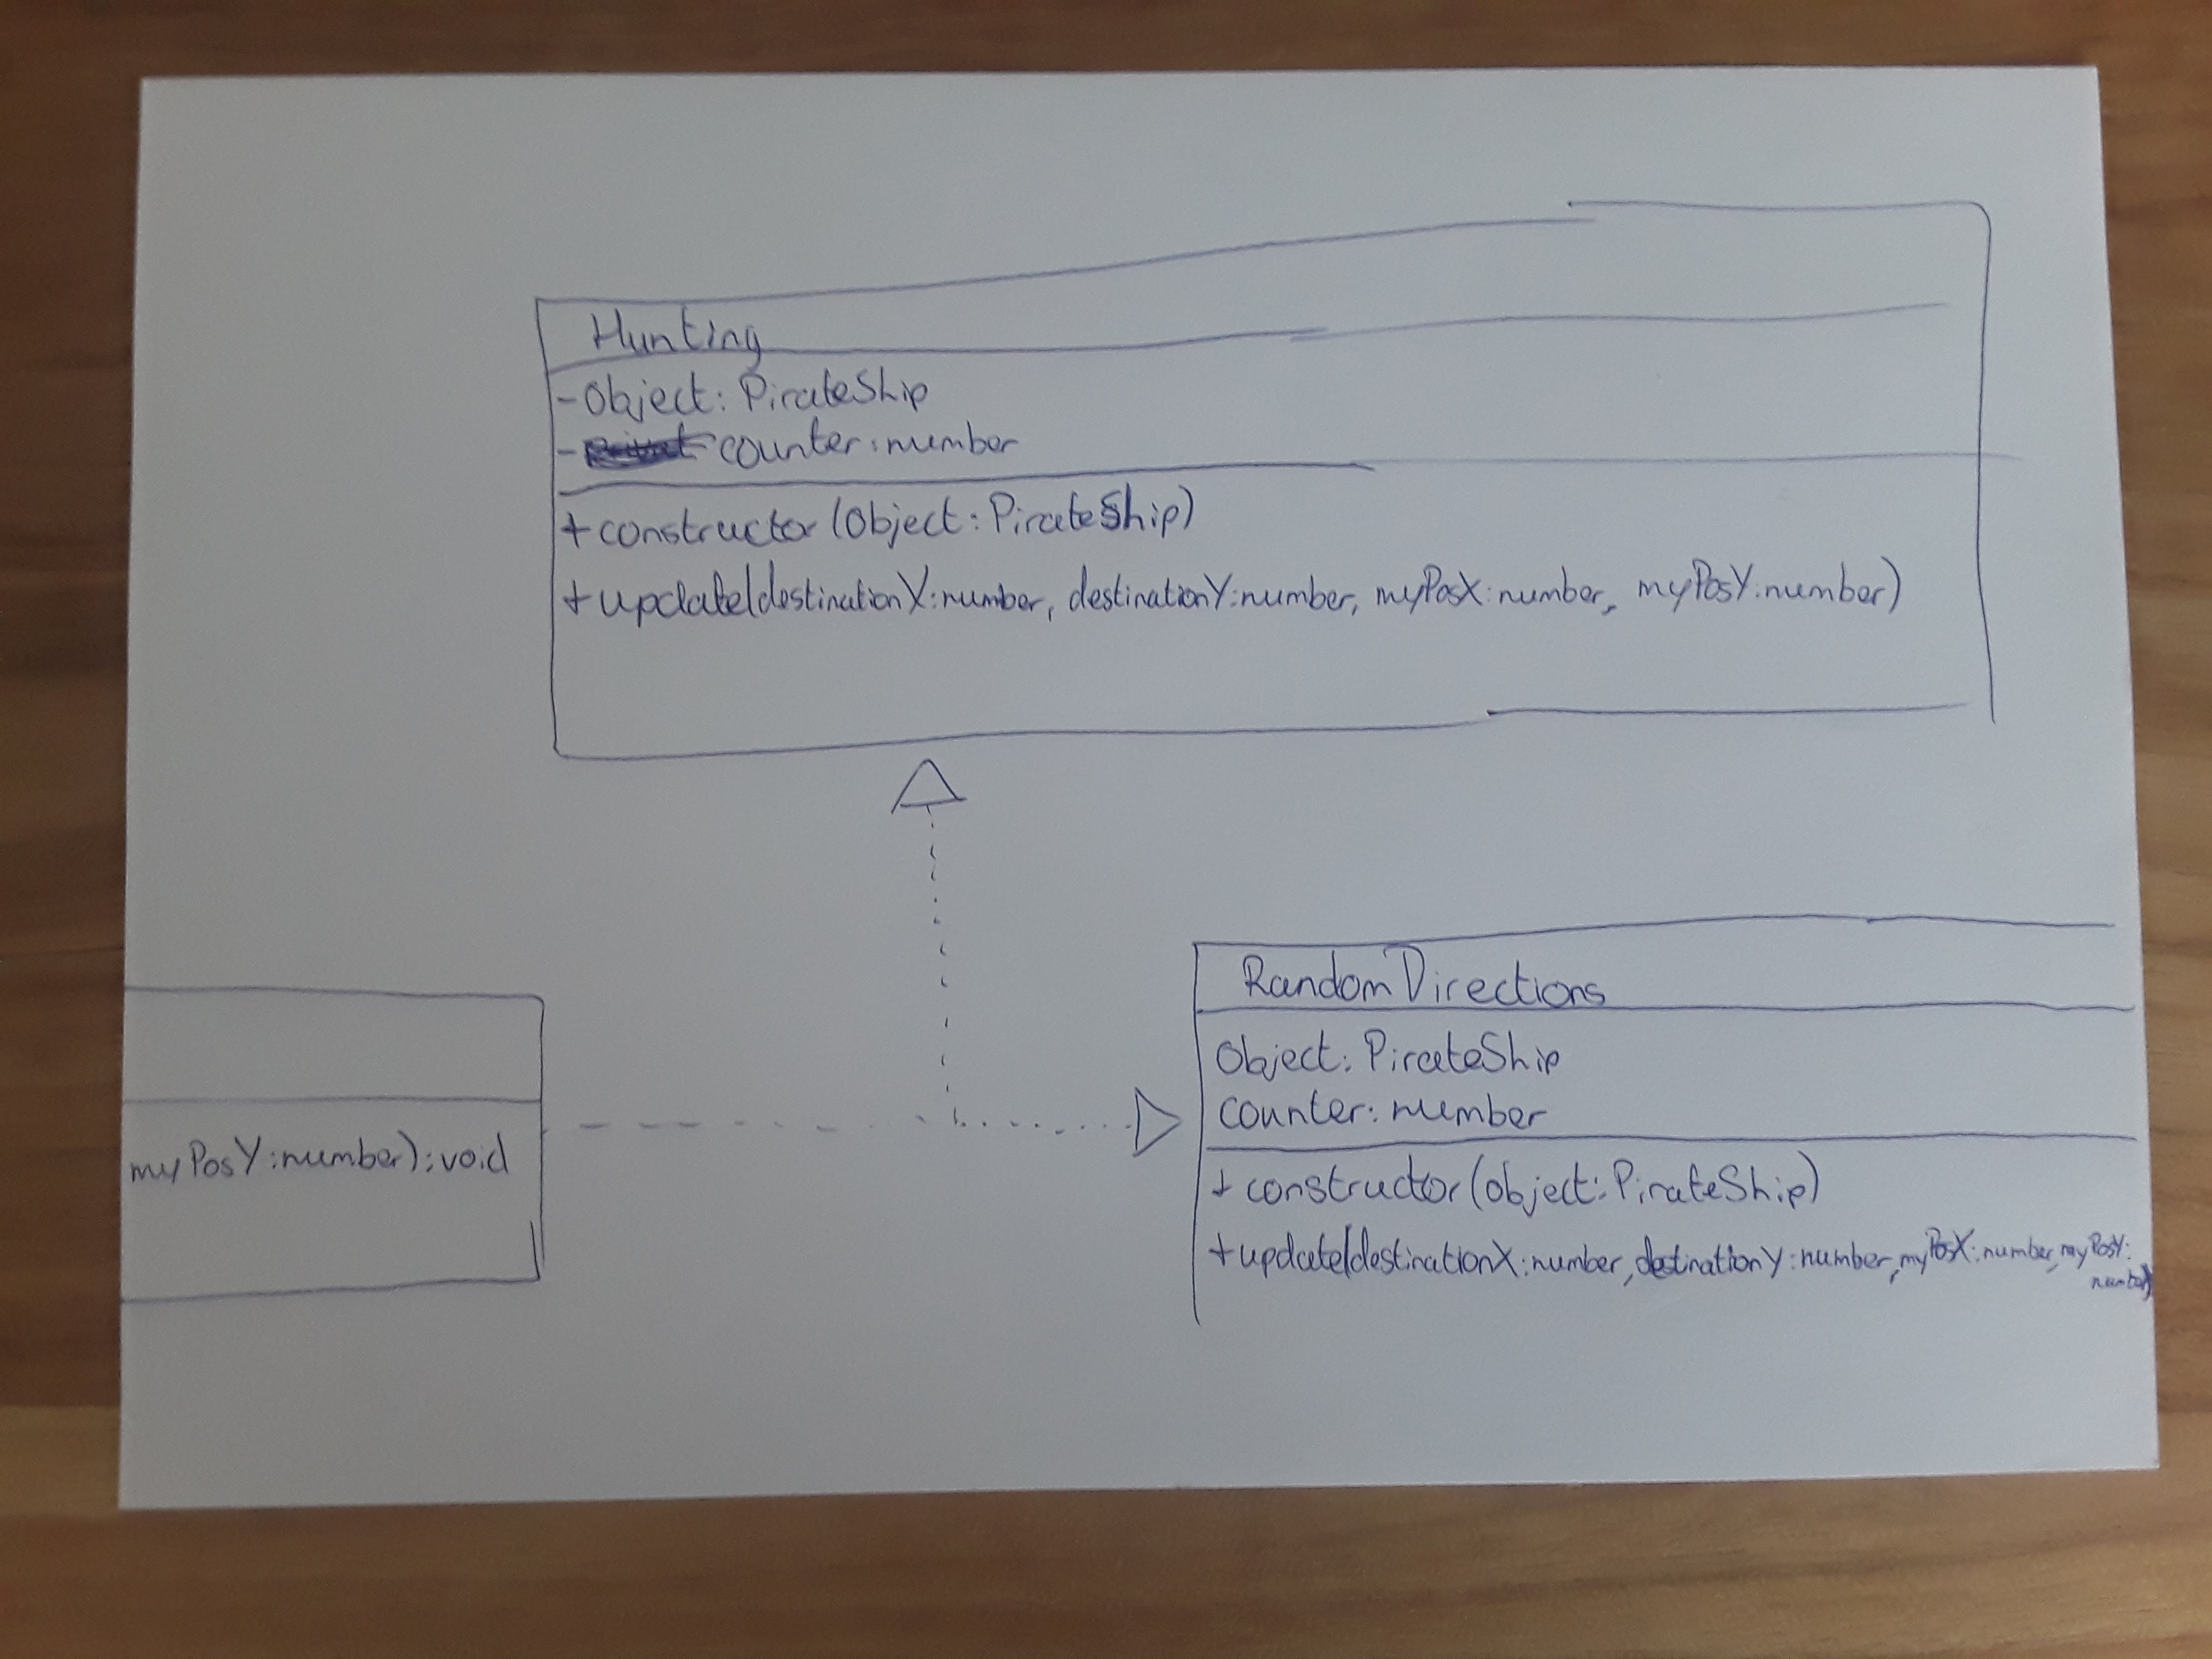 Hunting
-Object: PirateShip
- counter:number
+ constructor (Object: PirateShip)
+ update(destinationX:number, destinationY:number, myPosX:number, myPosY:number)
myPosY:number):void
RandomDirections
Object: PirateShip
counter: number
+ constructor(object: PirateShip)
+ update(destinationX:number, destinationY:number, myPosX:number, myPosY:
number)